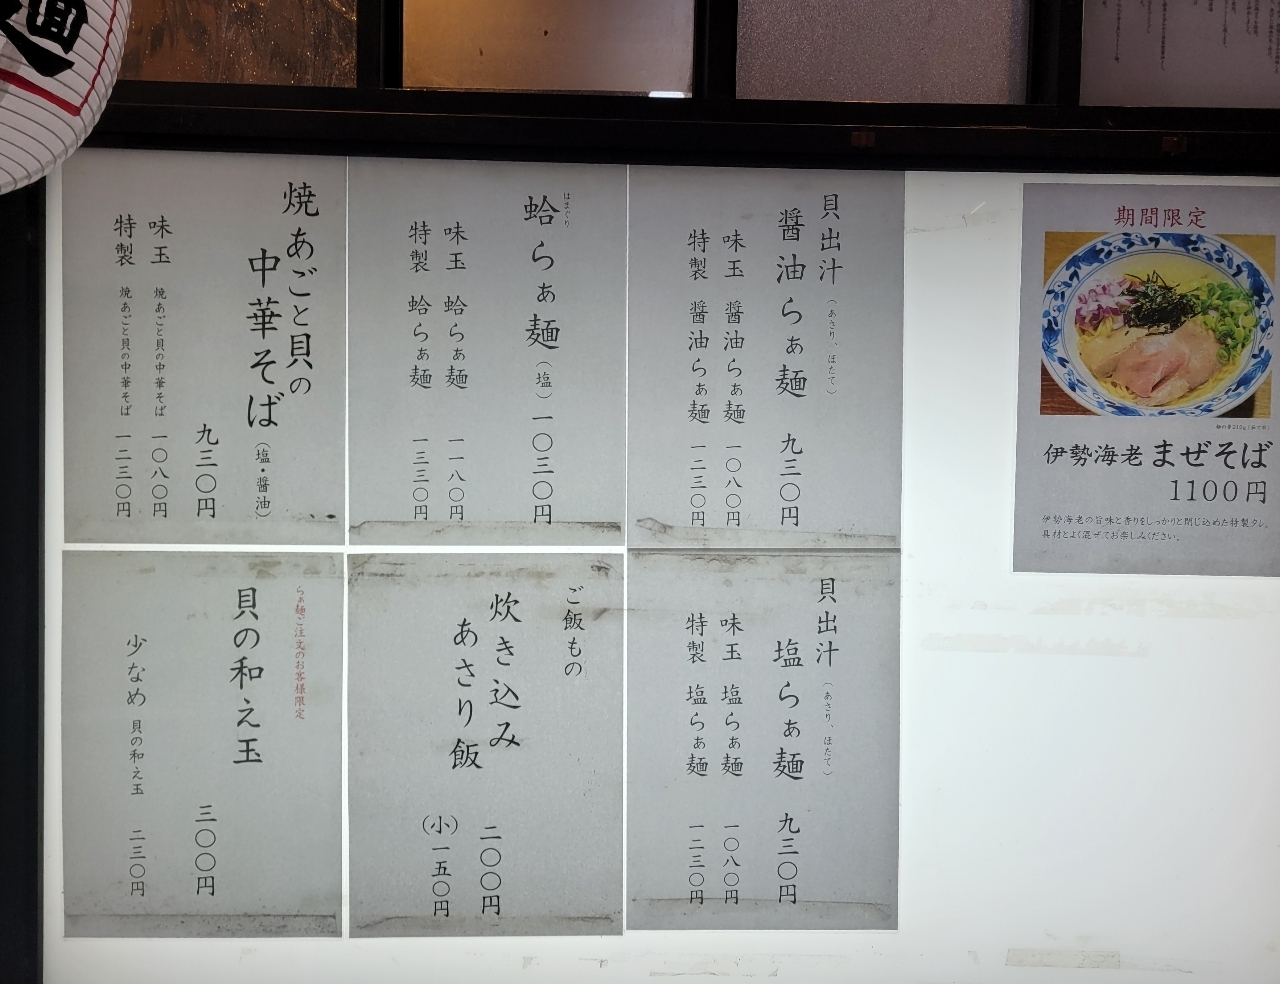 麺
貝出汁（あさり、ほたて）
醤油らぁ麺 九三〇円
味玉 醤油らぁ麺 一〇八〇円
特製 醤油らぁ麺 一二三〇円
はまぐり
蛤らぁ麺（塩）一〇三〇円
味玉 蛤らぁ麺 一一八〇円
特製 蛤らぁ麺 一三三〇円
焼あごと貝の
中華そば（塩・醤油）
九三〇円
味玉 焼あごと貝の中華そば 一〇八〇円
特製 焼あごと貝の中華そば 一二三〇円
貝出汁（あさり、ほたて）
塩らぁ麺 九三〇円
味玉 塩らぁ麺 一〇八〇円
特製 塩らぁ麺 一二三〇円
ご飯もの
炊き込み
あさり飯
二〇〇円
（小）一五〇円
らぁ麺ご注文のお客様限定
貝の和え玉
三〇〇円
少なめ 貝の和え玉 二三〇円
期間限定
伊勢海老まぜそば
1100円
伊勢海老の旨味と香りをしっかりと閉じ込めた特製タレ。
具材とよく混ぜてお楽しみください。